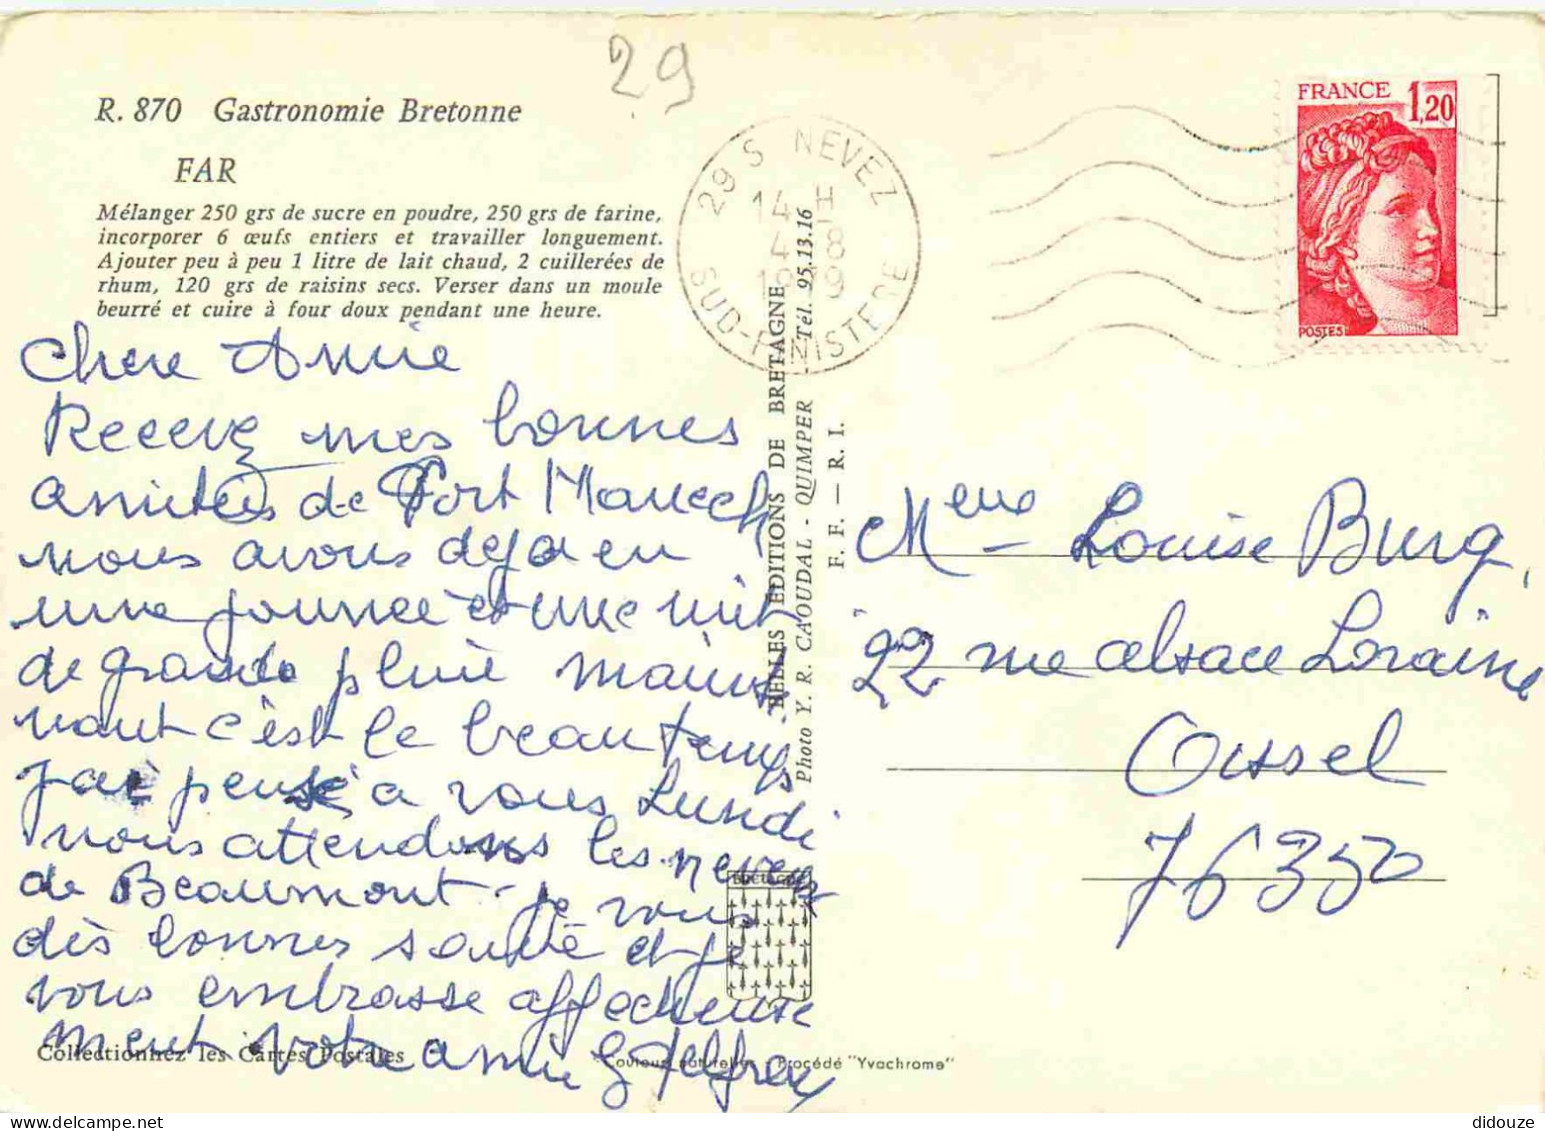 29
R. 870 Gastronomie Bretonne
FAR
Mélanger 250 grs de sucre en poudre, 250 grs de farine,
incorporer 6 œufs entiers et travailler longuement.
Ajouter peu à peu 1 litre de lait chaud, 2 cuillerées de
rhum, 120 grs de raisins secs. Verser dans un moule
beurré et cuire à four doux pendant une heure.
Chere Annie
Recevez mes bonnes
amitiés de Port Manech
nous avons deja eu
une journeé et une nuit
de grande pluie mainte
nant c'est le beau temps
J'ai pensé a vous Lundi
nous attendons les neveux
de Beaumont je vous
dès bonnes santé et je
vous embrasse affectueuse
ment votre amie G
Collectionnez les Cartes Postales
Couleurs naturelles - Procédé "Yvachrome"
29 S NEVEZ
14 H
4 - 8
1979
SUD-FINISTERE
BELLES EDITIONS DE BRETAGNE
Photo Y. R. CAOUDAL - QUIMPER - Tél. 95.13.16
F. F. — R. I.
BRETAGNE
FRANCE 1,20
POSTES
Meme Louise Burg
22 rue alsace Loraine
Oissel
76350
didouze